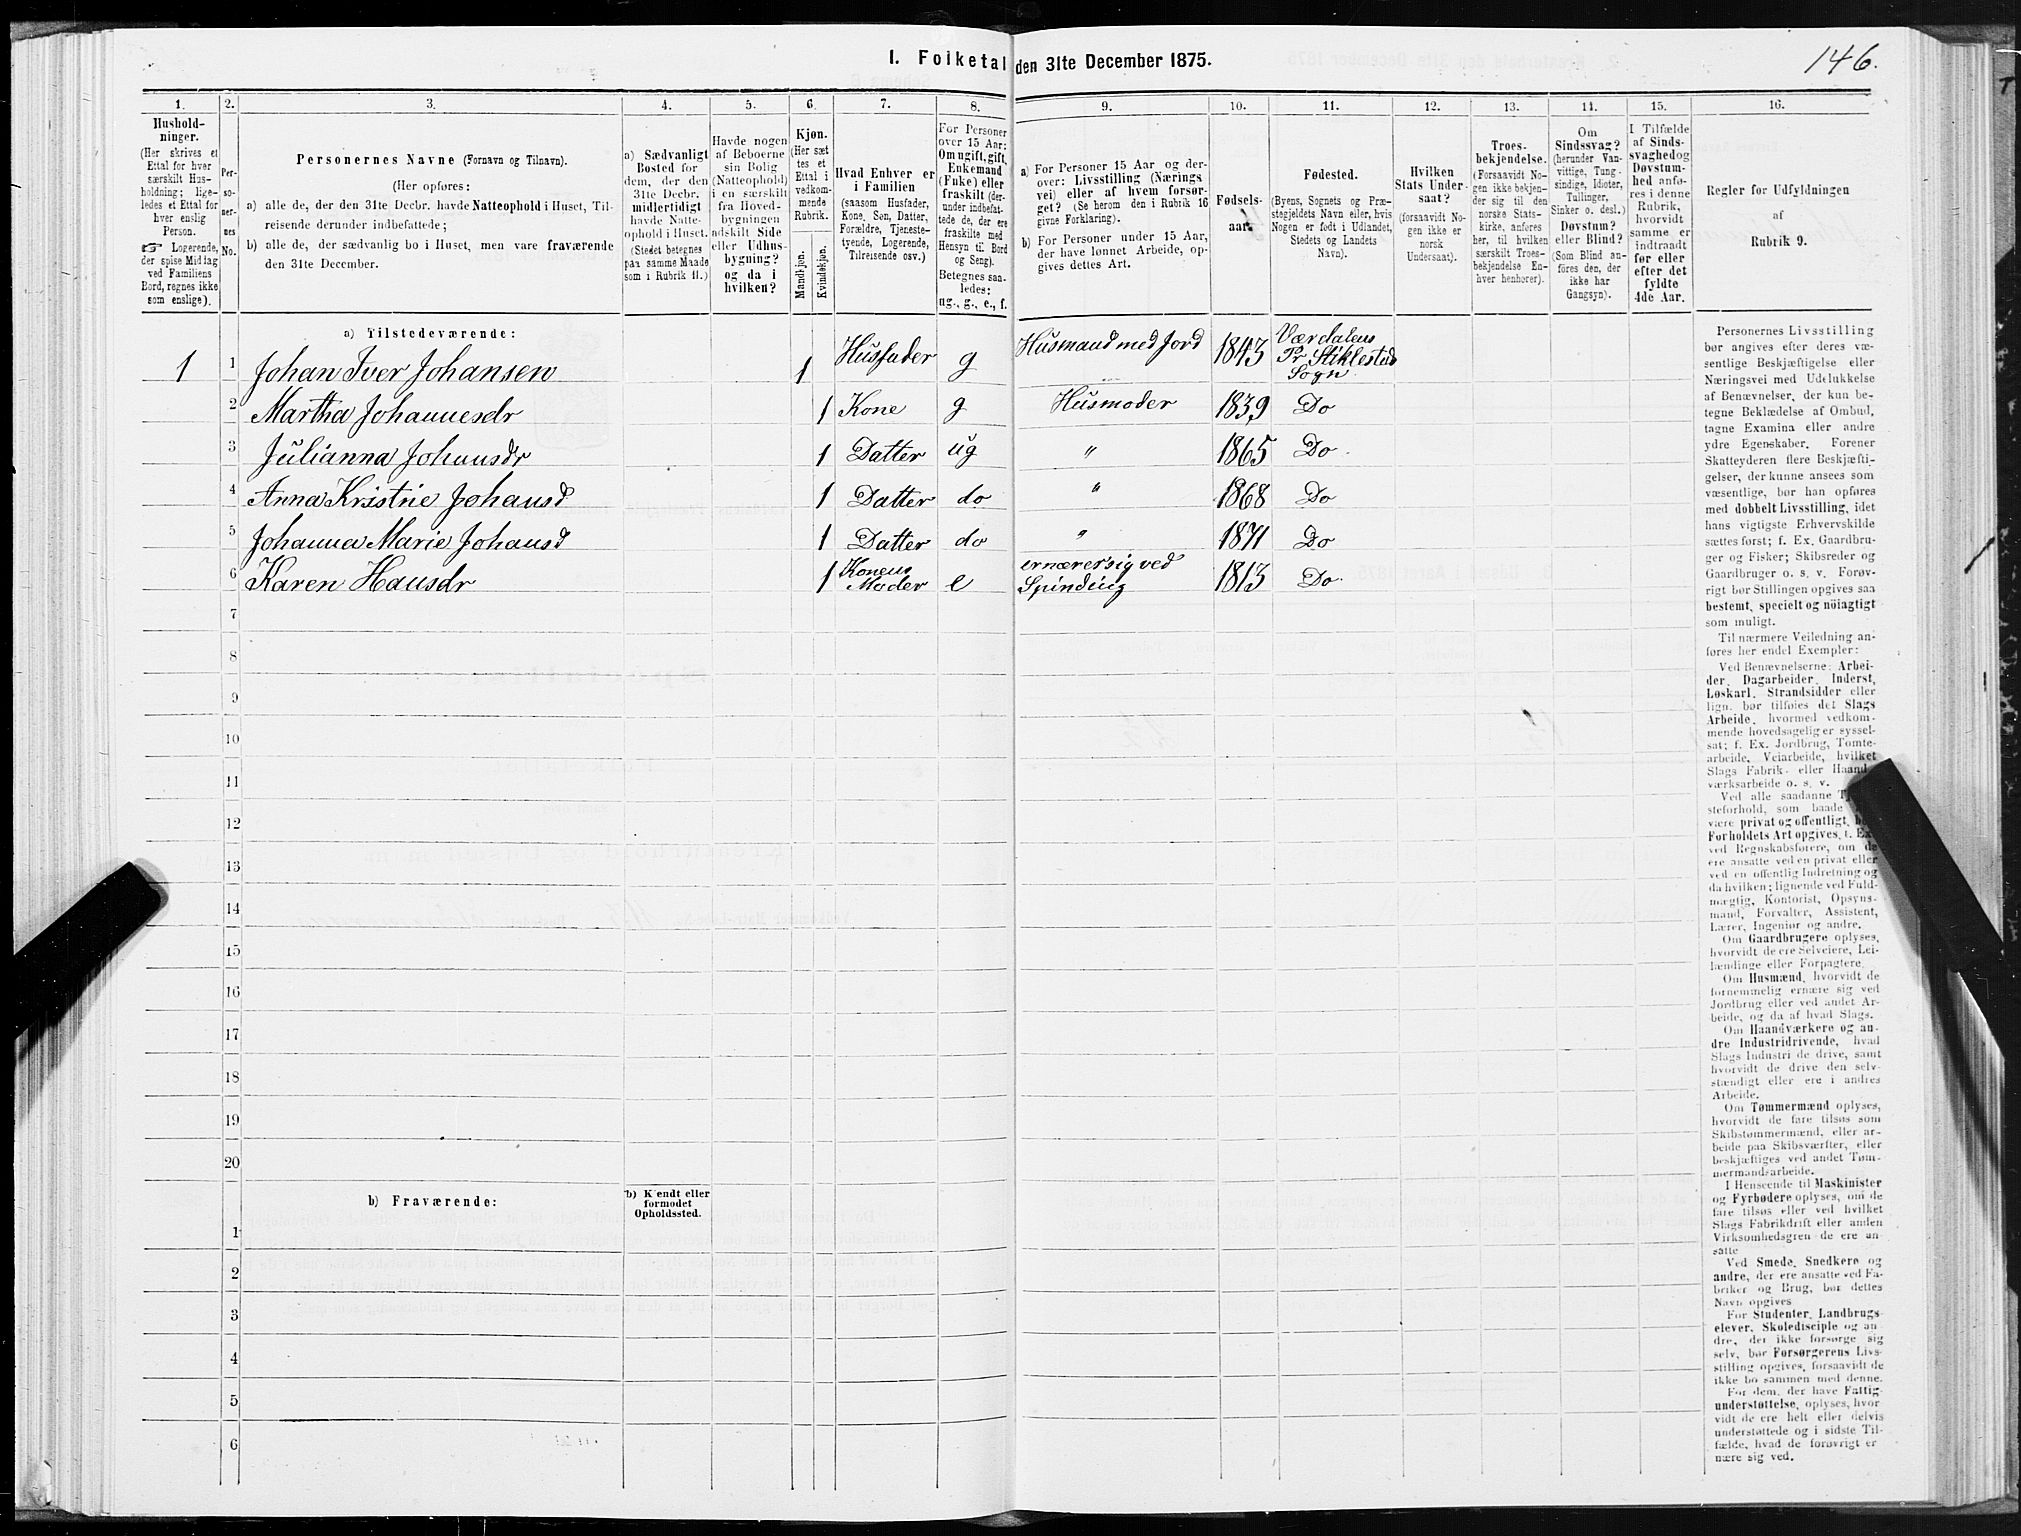 146.
I. Folketal den 31te December 1875.
1. 2. 3. 4. 5. 6. 7. 8. 9. 10. 11. 12. 13. 14. 15. 16.
Hushold-
ninger.
(Her skrives et
Ettal for hver
særskilt Hus-
holdning; lige-
ledes et Ettal for
hver enslig
Person.
☞ Logerende,
der spise Middag
ved Familiens
Bord, regnes ikke
som enslige).
Per-
so-
ner-
nes
No.
Personernes Navne (Fornavn og Tilnavn).
(Her opføres:
a) alle de, der den 31te Decbr. havde Natteophold i Huset, Til-
reisende derunder indbefattede;
b) alle de, der sædvanlig bo i Huset, men vare fraværende
den 31te December.
a) Sædvanligt
Bosted for
dem, der den
31te Decbr.
midlertidigt
havde Natte-
ophold i Huset.
(Stedet betegnes
paa samme Maade
som i Rubrik 11.)
Havde nogen
af Beboerne
sin Bolig
(Natteophold)
i en særskilt
fra Hoved-
bygningen
adskilt Side
eller Udhus-
bygning?
og da i
hvilken?
Kjøn.
(Her sæt
tes et
Ettal i
vedkom-
mende
Rubrik.
Mandkjøn.
Kvindekjøn.
Hvad Enhver er
i Familien
(saasom Husfader,
Kone, Søn, Datter,
Forældre, Tjeneste-
tyende, Logerende,
Tilreisende osv.)
For Personer
over 15 Aar:
Om ugift, gift,
Enkemand
(Enke) eller
fraskilt (der-
under indbefat-
tede de, der ere
fraskilte med
Hensyn til Bord
og Seng).
Betegnes saa-
ledes:
ug., g., e., f.
a) For Personer 15 Aar og der-
over: Livsstilling (Nærings-
vei) eller af hvem forsør-
get? (Se herom den i Rubrik 16
givne Forklaring).
b) For Personer under 15 Aar,
der have lønnet Arbeide, op-
gives dettes Art.
Fødsels-
aar.
Fødested.
(Byens, Sognets og Præ-
stegjeldets Navn eller, hvis
Nogen er født i Udlandet,
Stedets og Landets
Navn).
Hvilken
Stats Under-
saat?
(forsaavidt No-
gen ikke er
norsk
Undersaat).
Troes-
bekjendelse.
(Forsaavidt No-
gen ikke bekjen-
der sig til den
norske Stats-
kirke, anføres
her, til hvilken
særskilt Troes-
bekjendelse En-
hver henhører).
Om
Sindssvag?
(herunder Van-
vittige, Tung-
sindige, Idioter,
Tullinger,
Sinker o. desl.)
Døvstum?
eller Blind?
(Som Blind an-
føres den, der
ikke har
Gangsyn).
I Tilfælde
af Sinds-
svaghed og
Døvstum-
hed anfø-
res i denne
Rubrik,
hvorvidt
samme er
indtraadt
før eller
efter det
fyldte
4de Aar.
Regler for Udfyldningen
af
Rubrik 9.
a) Tilstedeværende:
1 1 Johan Iver Johansen 1 Husfader g Husmand med Jord 1843 Værdalens
Pr. Stiklestad
Sogn
2 Martha Johannesdr 1 Kone g Husmoder 1839 Do
3 Julianna Johansdr 1 Datter ug " 1865 Do
4 Anna Kristie Johansd 1 Datter do " 1868 Do
5 Johanna Marie Johansd 1 Datter do " 1871 Do
6 Karen Hansdr 1 Konens
Moder e ernærer sig ved
Spinding 1813 Do
7
8
9
10
11
12
13
14
15
16
17
18
19
20
b) Fraværende:
b) Kjendt eller
formodet
Opholdssted.
1
2
3
4
5
6
Personernes Livsstilling
bør angives efter deres væ-
sentlige Beskjæftigelse eller
Næringsvei med Udelukkelse
af Benævnelser, der kun be-
tegne Beklædelse af Ombud,
tagne Examina eller andre
ydre Egenskaber. Forener
Skatteyderen flere Beskjæfti-
gelser, der kunne ansees som
væsentlige, bør han opføres
med dobbelt Livsstilling, idet
hans vigtigste Erhvervskilde
sættes først; f. Ex. Gaardbru-
ger og Fisker; Skibsreder og
Gaardbruger o. s. v. Forøv-
rigt bør Stillingen opgives saa
bestemt, specielt og nöiagtigt
som muligt.
Til nærmere Veiledning an-
føres her endel Exempler:
Ved Benævnelserne: Arbei-
der, Dagarbeider, Inderst,
Løskarl, Strandsidder eller
lign. bør tilføies det Slags
Arbeide, hvormed vedkom-
mende hovedsagelig er syssel-
sat; f. Ex. Jordbrug, Tomte-
arbeide, Veiarbeide, hvilket
Slags Fabrik- eller Haand-
værksarbeide o. s. v.
Ved alle saadanne
steforhold, som baade
være privat og offentligt,
Forholdets Art opgives, t. Ex.
ved Regnskabsførere, om de
ere ansatte ved en privat eller
ved en offentlig Indretning og
da hvilken; lignende ved Fuld-
mægtig, Kontorist, Opsyns-
mand, Forvalter, Assistent,
Lærer, Ingeniør og andre.
Om Gaardbrugere oplyses,
hvorvidt de ere Selveiere, Lei-
lændinge eller Forpagtere.
Om Husmænd, hvorvidt de
fornemmelig ernære sig ved
Jordbrug eller ved andet Ar-
beide, og da af hvad Slags.
Om Haandværkere og an-
dre Industridrivende, hvad
Slags Industri de drive, samt
hvorvidt de drive den selv-
stændigt eller ere i andres
Arbeide.
Om Tømmermænd oplyses,
hvorvidt de fare tilsøs som
Skibstømmermænd, eller ar-
beide paa Skibsværfter, eller
beskjæftiges ved andet Tøm-
mermandsarbeide.
I Henseende til Maskinister
og Fyrbødere oplyses, om de
fare tilsøs eller ved hvilket
Slags Fabrikdrift eller anden
Virksomhedsgren de ere an-
satte
Ved Smede, Snedkere og
andre, der ere ansatte ved Fa-
briker og Brug, bør dettes
Navn opgives
For Studenter, Landbrugs-
elever, Skoledisciple og an-
dre, der ikke forsørge sig
selv, bør Forsørgerens Livs-
stilling opgives, forsaavidt de
ikke bo sammen med denne.
For dem, der have Fattig-
understøttelse, oplyses, hvor
vidt de ere helt eller delvis
understøttede og i sidste Til-
fælde, hvad de forøvrigt er
nære sig ved.